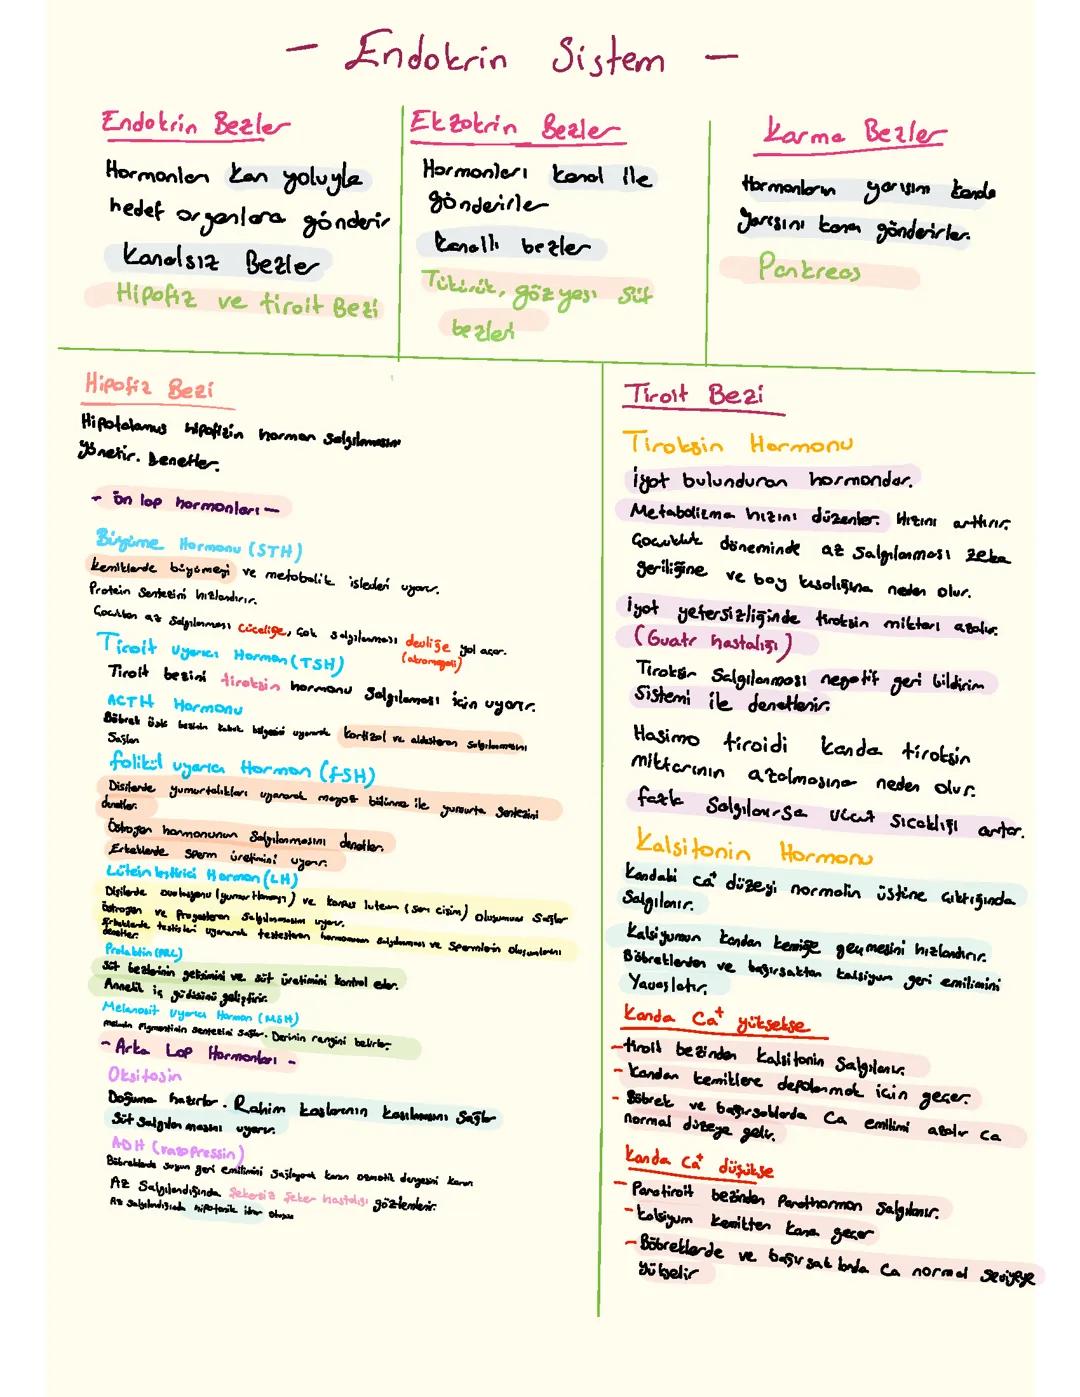 - Endokrin Sistem -
Endokrin Bezler
Hormonları kan yoluyla
hedef organlara gönderir
Kanalsız Bezler
Hipofiz ve tiroit Bezi
Ekzokrin Bezler
Hormonları kanal ile
gönderirler
Kanallı bezler
Tükürük, göz yaşı süt
bezleri
Karma Bezler
Hormonların yarısını kanala
yarısını kana gönderirler.
Pankreas
Hipofiz Bezi
Hipotalamus hipofizin hormon salgılamasını
yönetir. Denetler.
- Ön lop hormonları -
Büyüme Hormonu (STH)
kemiklerde büyümeyi ve metabolik işlederi uyarır.
Protein Sentezini hızlandırır.
Çocukken az salgılanması cüceliğe, çok salgılanması devliğe yol açar.
(akromegali)
Tiroit Uyarıcı Hormon (TSH)
Tiroit bezini tiroksin hormonu salgılaması için uyarır.
ACTH Hormonu
Böbrek üstü bezinin kabuk bölgesini uyararak kortizol ve aldosteron salgılanmasını
Sağlar
folikül uyarıcı Hormon (fSH)
Dişilerde yumurtalıkları uyararak mayoz bölünme ile yumurta Sentezini
denetler.
Östrojen hormonunun Salgılanmasını denetler.
Erkeklerde sperm üretimini uyarır.
Lüteinleştirici Hormon (LH)
Dişilerde ovulasyonu (yumurtlamayı) ve korpus luteum (sarı cisim) oluşumunu Sağlar
östrojen ve Progesteron Salgılanmasını uyarır.
Erkeklerde testisleri uyararak testesteron hormonunun salgılanması ve Spermlerin oluşumlarını
denetler.
Prolaktin (PRL)
Süt bezlerinin gelişimini ve süt üretimini kontrol eder.
Annelik iç güdüsünü geliştirir.
Melanosit Uyarıcı Hormon (MSH)
melanin Pigmentinin sentezini sağlar. Derinin rengini belirler.
- Arka Lop Hormonları -
Oksitosin
Doğuma hazırlar. Rahim kaslarının kasılmasını Sağlar
Süt salgılanmasını uyarır.
ADH (vazopressin)
Böbreklerde suyun geri emilimini Sağlayarak kanın osmotik dengesini korur
Az Salgılandığında Şekersiz Şeker hastalığı gözlemlenir.
Az salgılandığında hipotonik idrar oluşur
Tiroit Bezi
Tiroksin Hormonu
İyot bulunduran hormondur.
Metabolizma hızını düzenler. Hızını arttırır.
Çocukluk döneminde az salgılanması zeka
geriliğine ve boy kısalığına neden olur.
İyot yetersizliğinde tiroksin miktarı azalır.
(Guatr hastalığı)
Tiroksin Salgılanması negatif geri bildirim
Sistemi ile denetlenir.
Haşimo tiroidi kanda tiroksin
miktarının azalmasına neden olur.
fazla Salgılanırsa vücut sıcaklığı artar.
Kalsitonin Hormonu
Kandaki Ca⁺ düzeyi normalin üstüne çıktığında
Salgılanır.
Kalsiyumun kandan kemiğe geçmesini hızlandırır.
Böbreklerden ve bağırsaktan kalsiyum geri emilimini
Yavaşlatır.
Kanda Ca⁺ yüksekse
-tiroit bezinden kalsitonin Salgılanır.
- Kandan kemiklere depolanmak için geçer.
- Böbrek ve bağırsaklarda Ca emilimi azalır Ca
normal düzeye gelir.
Kanda Ca⁺ düşükse
- Paratiroit bezinden Parathormon Salgılanır.
- kalsiyum kemikten kana geçer
- Böbreklerde ve bağırsaklarda Ca normal Seviyeye
yükselir